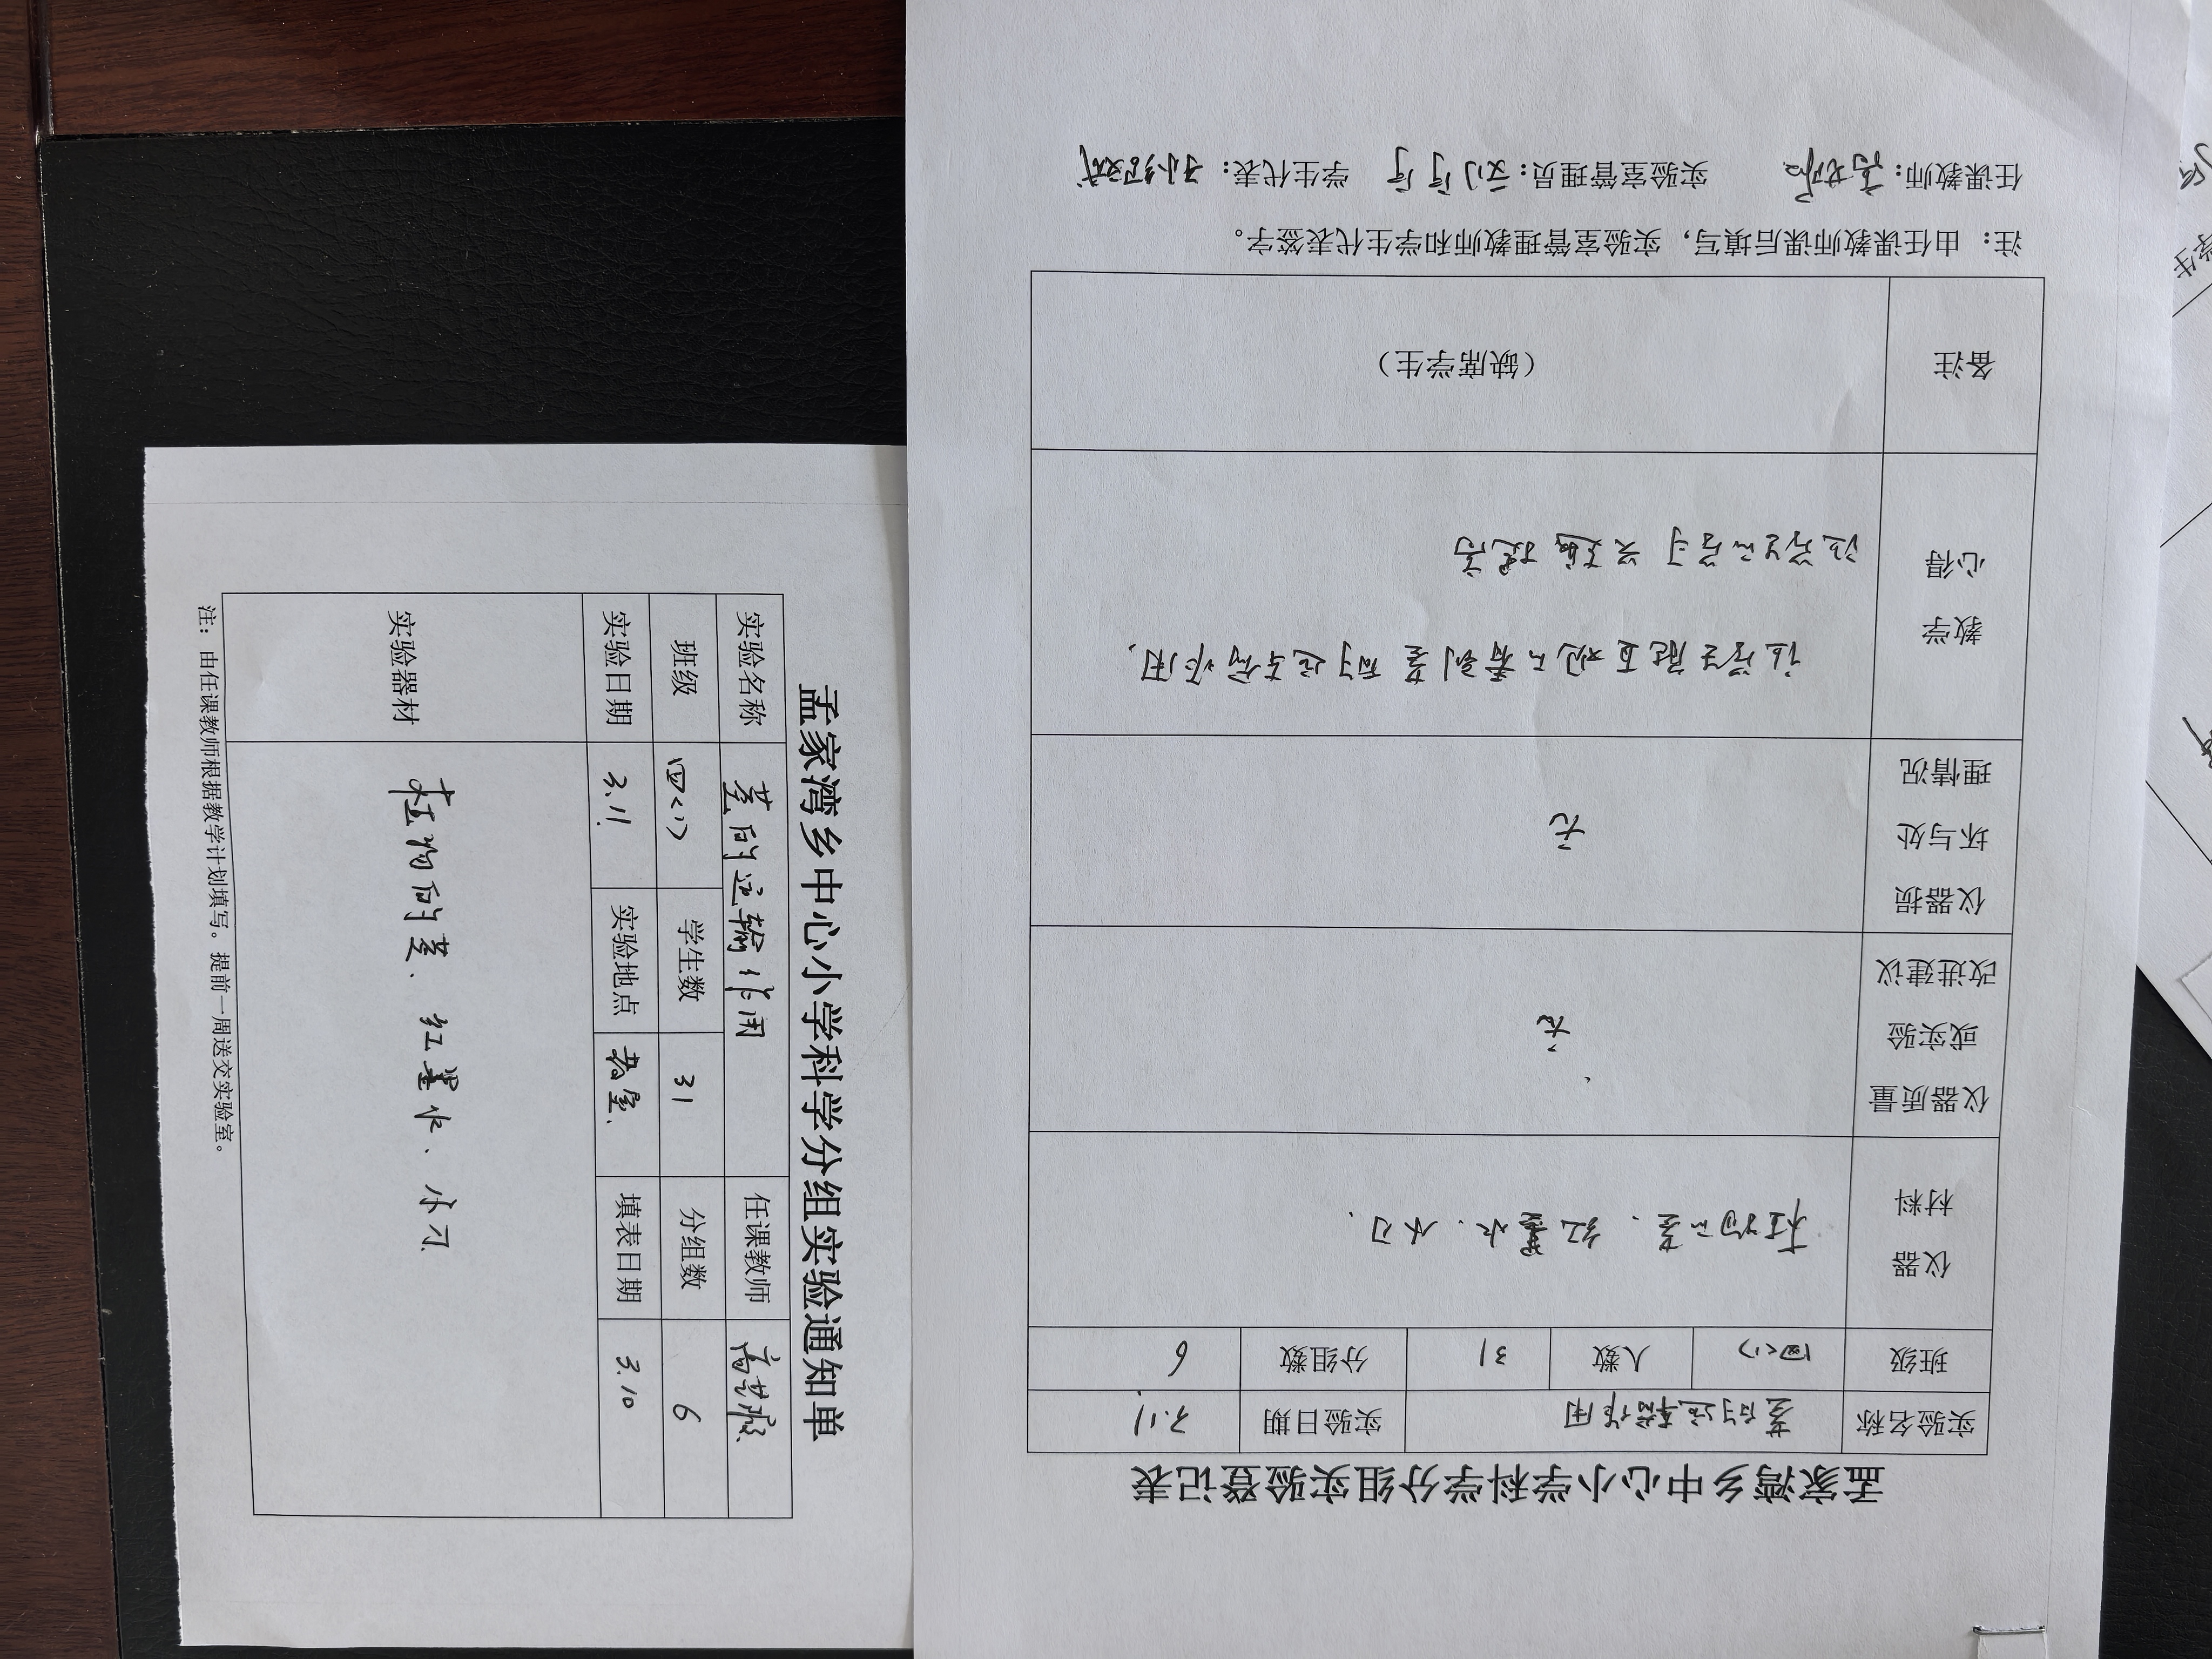 孟家湾乡中心小学科学分组实验通知单
实验名称 茎的运输作用 任课教师
班级 四(1) 学生数 31 分组数 6
实验日期 3.11 实验地点 教室 填表日期 3.10
实验器材 植物的茎、红墨水、小刀
注：由任课教师根据教学计划填写。提前一周送交实验室。
孟家湾乡中心小学科学分组实验登记表
实验名称 茎的运输作用 实验日期 3.11
班级 四(1) 人数 31 分组数 6
仪器材料 植物的茎、红墨水、小刀.
仪器质量或实验改进建议 无
仪器损坏与处理情况 无
教学心得 让学生能直观的看到茎的运输作用,
让学生的学习兴趣提高
备注 (缺席学生)
注：由任课教师课后填写，实验室管理教师和学生代表签字。
任课教师： 实验室管理员： 学生代表：